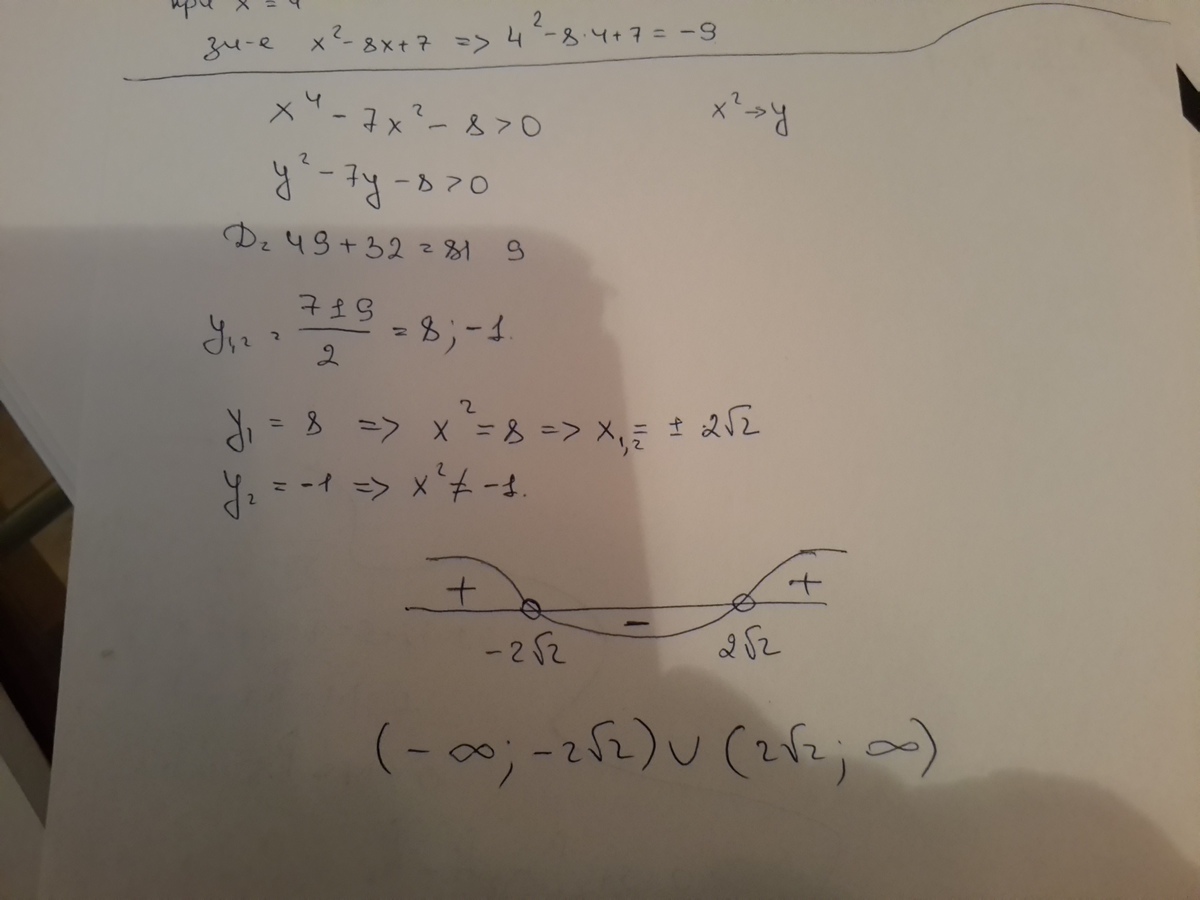 при x = 4
зн-е x² - 8x + 7 => 4² - 8·4 + 7 = -9
x⁴ - 7x² - 8 > 0 x² → y
y² - 7y - 8 > 0
D = 49 + 32 = 81 9
y₁,₂ = (7 ± 9)/2 = 8; -1.
y₁ = 8 => x² = 8 => x₁,₂ = ± 2√2
y₂ = -1 => x² ≠ -1.
+ - +
-2√2 2√2
(-∞; -2√2) ∪ (2√2; ∞)